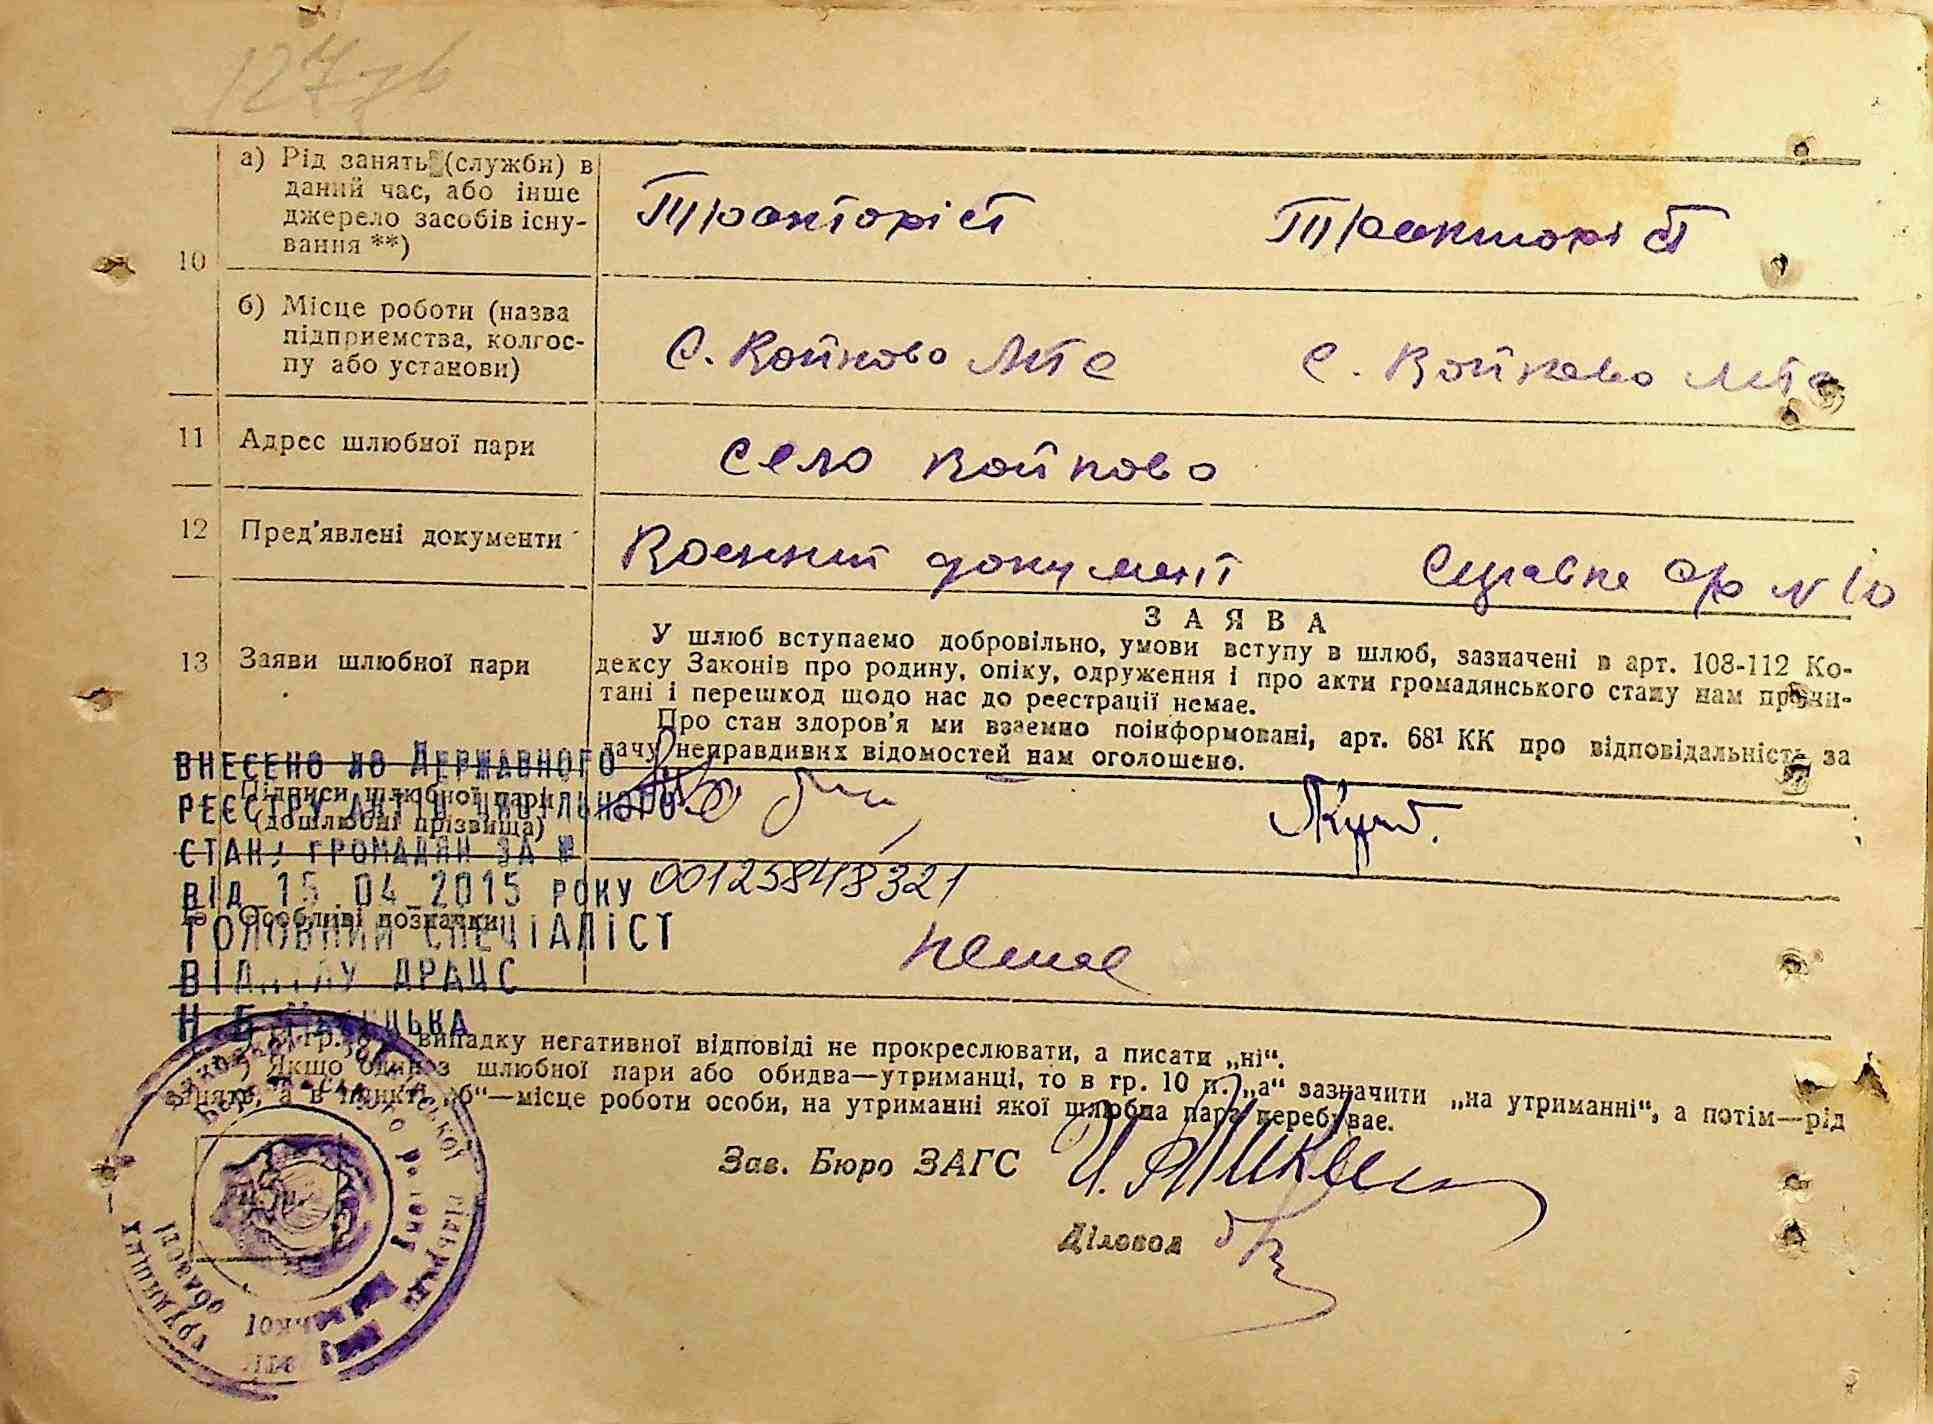 127 зв
10
а) Рід занять (служби) в
даний час, або інше
джерело засобів існу-
вання **)
Тракторіст
Тракторіст
б) Місце роботи (назва
підприємства, колгос-
пу або установи)
с. Войково МТС
с. Войково МТС
11 Адрес шлюбної пари
село Войково
12 Пред'явлені документи
Военний документ
Справка ф N 10
13 Заяви шлюбної пари
ЗАЯВА
У шлюб вступаємо добровільно, умови вступу в шлюб, зазначені в арт. 108-112 Ко-
дексу Законів про родину, опіку, одруження і про акти громадянського стану нам прочи-
тані і перешкод щодо нас до реєстрації немає.
Про стан здоров'я ми взаємно поінформовані, арт. 68¹ КК про відповідальність за
дачу неправдивих відомостей нам оголошено.
Підписи шлюбної пари
(дошлюбні прізвища)
ВНЕСЕНО ДО ДЕРЖАВНОГО
РЕЄСТРУ АКТІВ ЦИВІЛЬНОГО
СТАНУ ГРОМАДЯН ЗА №
00125848321
ВІД 15.04.2015 РОКУ
ГОЛОВНИЙ СПЕЦІАЛІСТ
ВІДДІЛУ ДРАЦС
Н Б
Особливі позначки
немає
випадку негативної відповіді не прокреслювати, а писати „ні“.
Якщо один з шлюбної пари або обидва—утриманці, то в гр. 10 п. „а“ зазначити „на утриманні“, а потім—рід
занять, а в пункті „б“—місце роботи особи, на утриманні якої шлюбна пара перебуває.
Зав. Бюро ЗАГС
Діловод